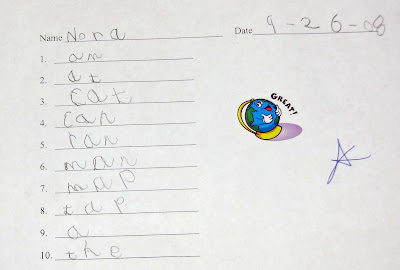 Name Nora Date 9-26-08
1. an
2. at
3. cat
4. can
5. ran
6. man
7. map
8. tap
9. a
10. the
GREAT!
A